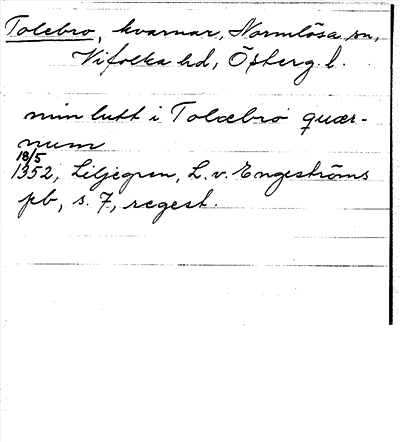 Tolebro, kvarnar, Normlösa sn,
Vifolka hd, Österg. l.
min lutt i Tolæbro quær-
num
18/5
1352, Liljegren, L. v. Engeströms
pb, s. 7, regest.